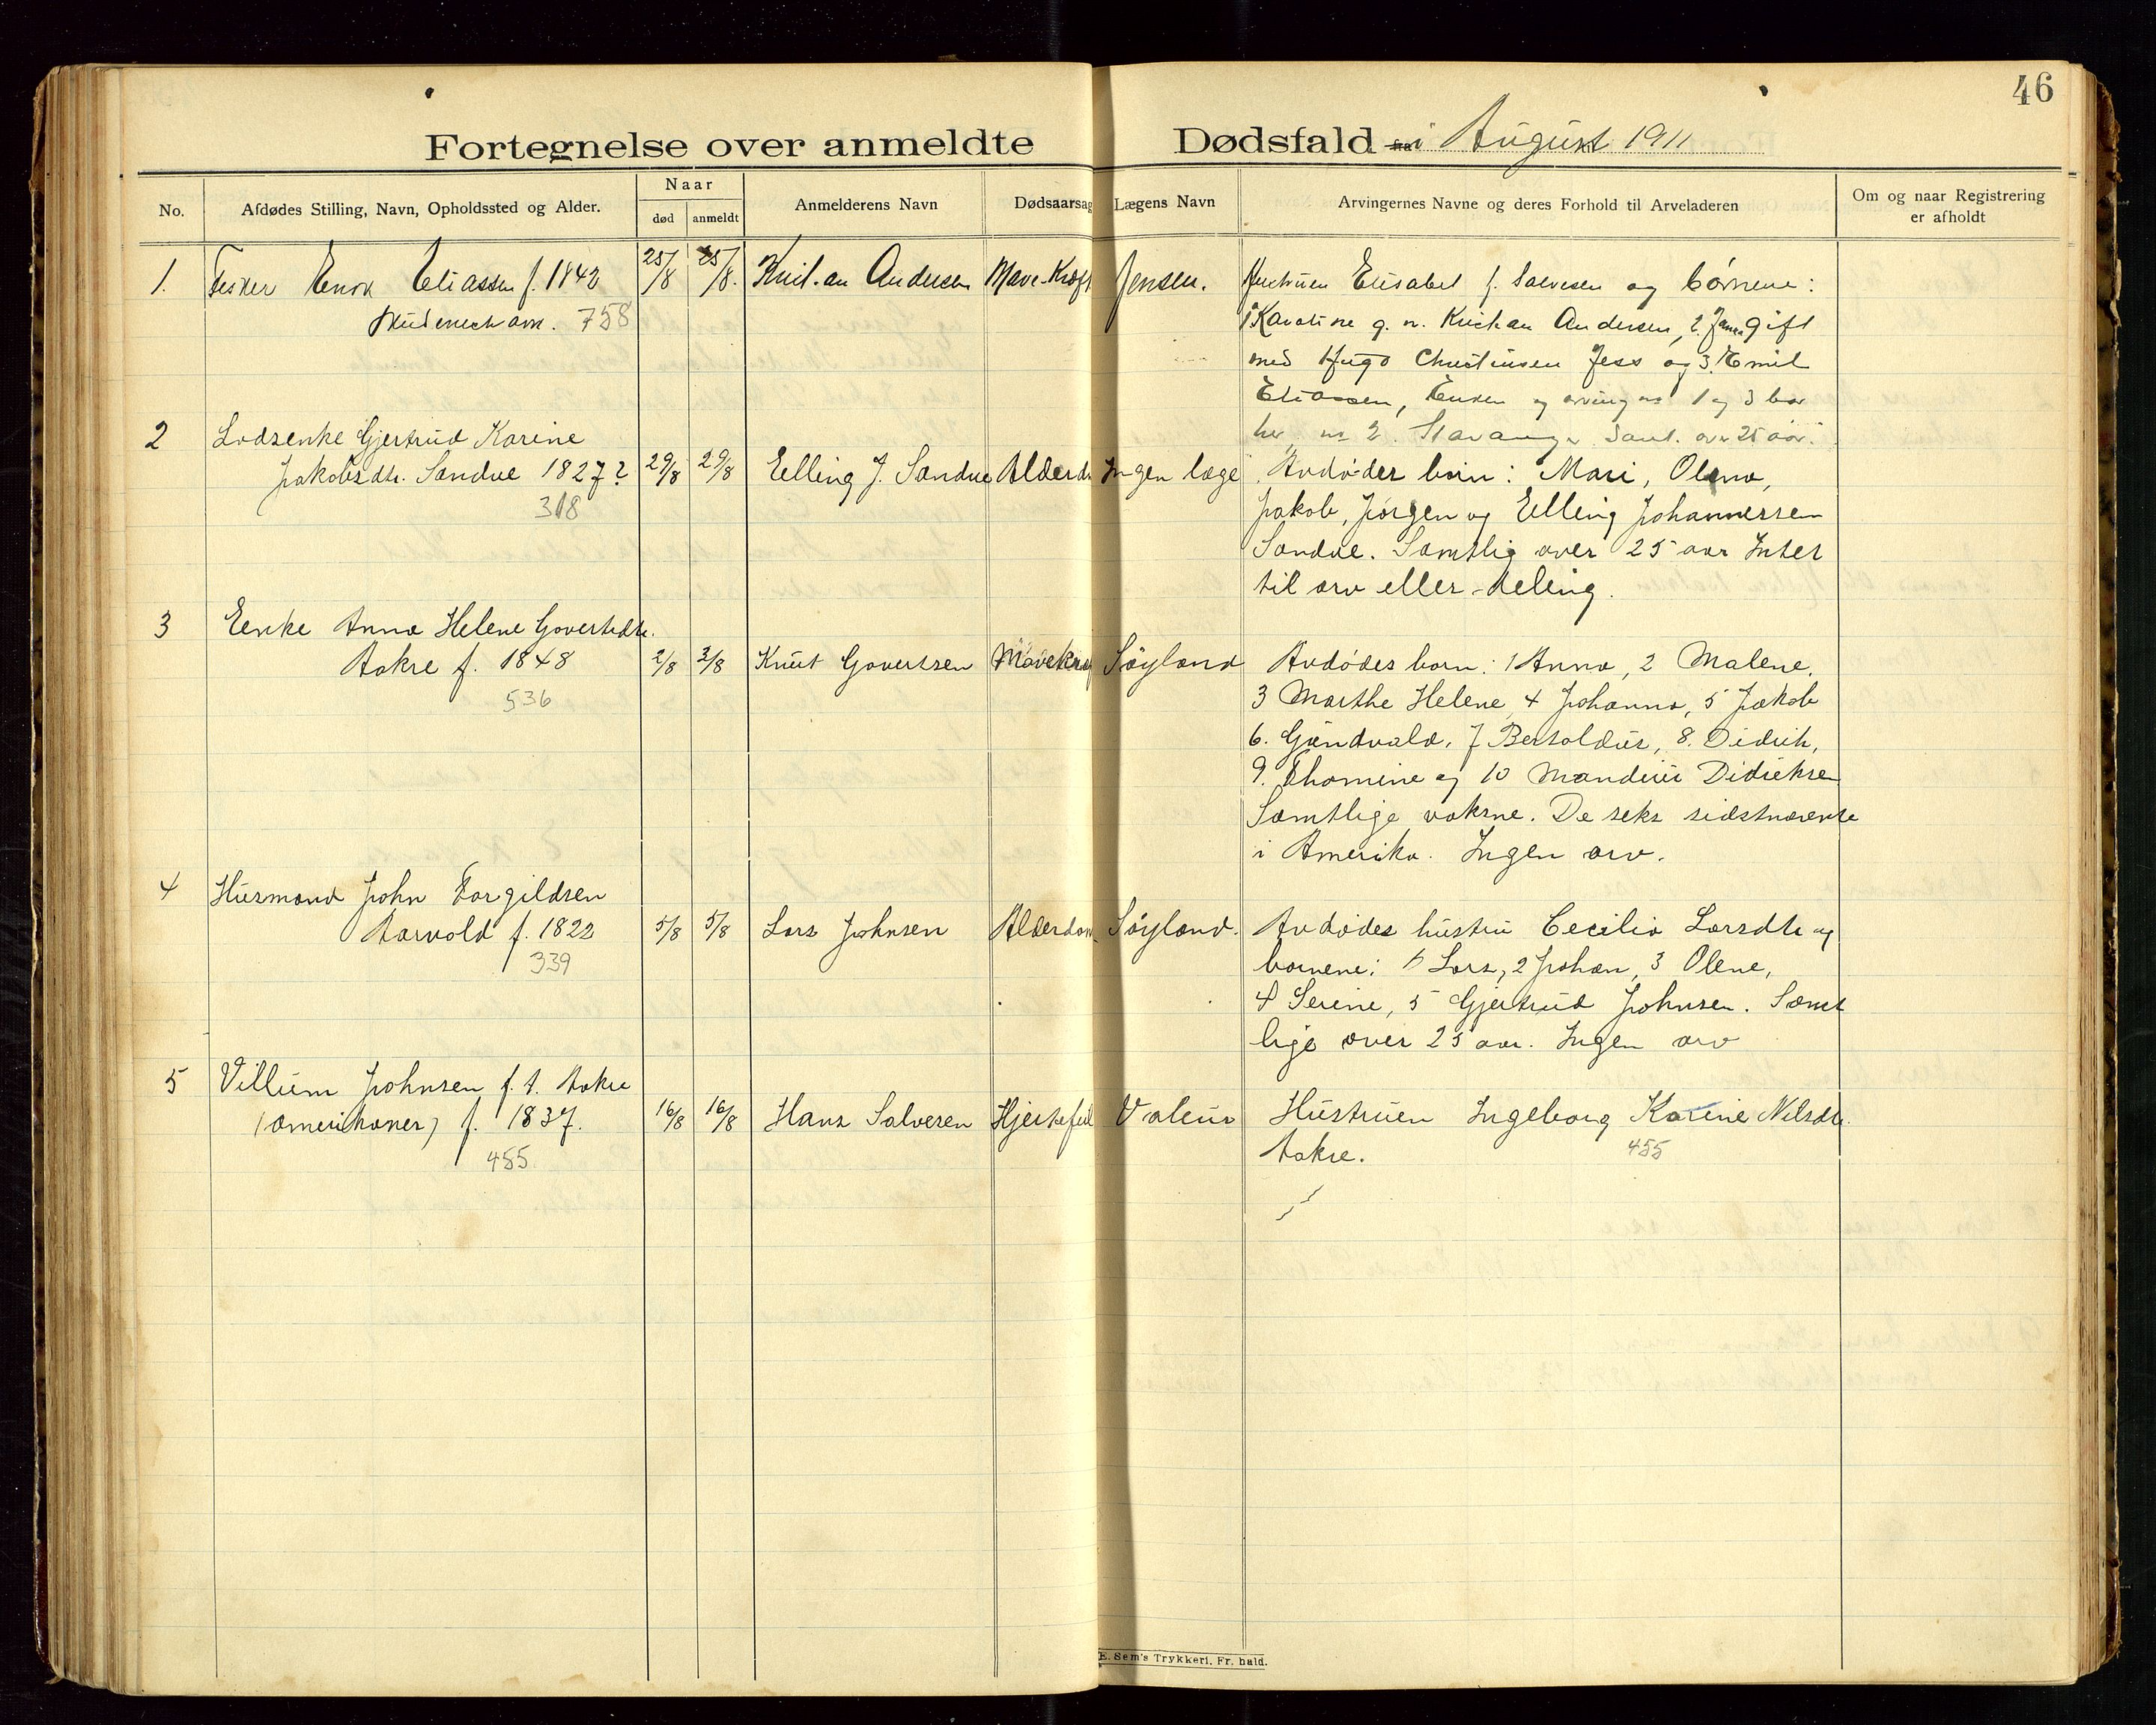 46
Fortegnelse over anmeldte Dødsfald i August 1911
No.
Afdødes Stilling, Navn, Opholdssted og Alder.
Naar
død
anmeldt
Anmelderens Navn
Dødsaarsag
Lægens Navn
Arvingernes Navne og deres Forhold til Arveladeren
Om og naar Registrering
er afholdt
1. Fisker Enok Eliassen f. 1842
Skudeneshavn. 758
25/8 25/8. Andersen Mave-Kræft Jensen.
Hustruen Elisabet f. Salvesen og börnene:
1 Karoline g. m. Andersen, 2. gift
med Hugo Christensen Jess og 3. Emil
Eliassen, Enken og arving no 1 og 3 bor
her, no 2. Stavanger Samt. over 25 aar.
2 Lodsenke Gjertrud Karine
Jakobsdtr. Sandve 1827?
318
29/8 29/8 Elling J. Sandve Alderd Ingen læge
Avdødes børn: Mari, Olena,
Jakob, Jørgen og Elling Johannessen
Sandve. Samtlig over 25 aar Intet
til arv eller deling.
3 Enke Anna Helene Govertsdtr.
Aakre f. 1848
536
2/8 3/8 Knut Govertsen Mavekræf Søyland
Avdødes born: 1 Anna, 2 Malene,
3 Marthe Helene, 4 Johanna, 5 Jakob
6. Gundvald, 7 Bertoldus, 8. Didrik,
9. Thomine og 10 Didriksen
Samtlige voksne. De seks sidstnævnte
i Amerika. Ingen arv.
4 Husmand John Torgildsen
Aarvold f. 1822
339
5/8 5/8 Lars Johnsen Alderdom Søyland.
Avdødes hustru Cecilia Larsdtr og
børnene: 1 Lars, 2 Johan, 3 Olene,
4 Serine, 5 Gjertrud Johnsen. Samt
lige over 25 aar. Ingen arv
5 Villum Johnsen f. t. Aakre
(amerikaner) f. 1837.
455
16/8 16/8 Hans Salvesen Hjertefeil Valeur
Hustruen Ingeborg Karine Nilsdtr.
Aakre. 455
E. Sem's Trykkeri, Fr. hald.